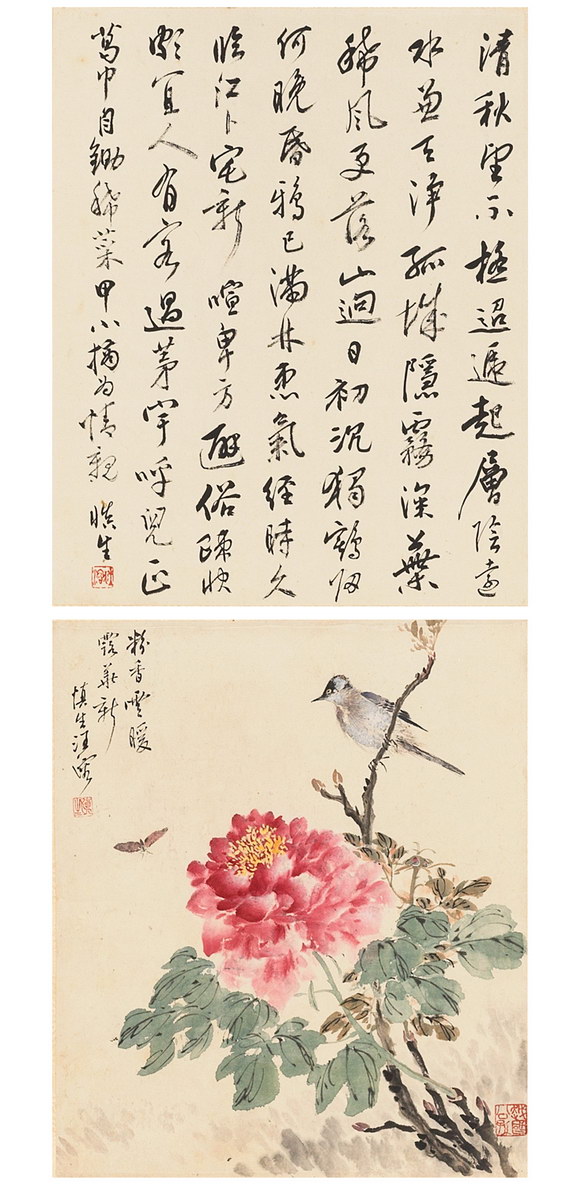 清秋望不極迢遞起層陰遠
水兼天淨孤城隱霧深葉
稀風更落山迥日初沉獨鶴歸
何晚昏鴉已滿林患氣經時久
臨江卜宅新喧卑方避俗疎快
頗宜人有客過茅宇呼兒正
葛巾自鋤稀菜甲小摘為情親 慎生
粉香吹暖
露華新
慎生汪溶